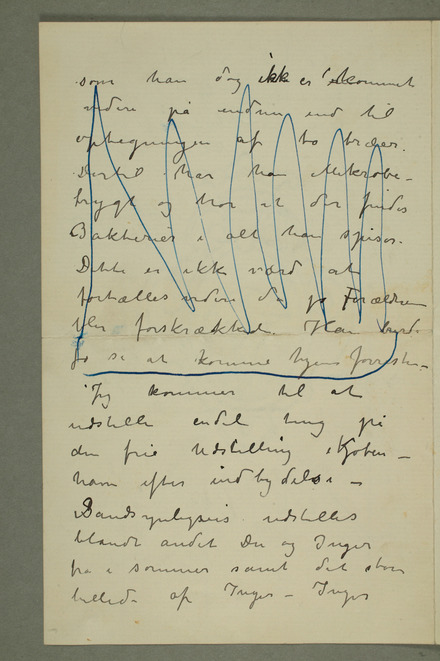 som han dog ikke er kommet
videre på endnu end til
optegningen af to træer.
Dertil har han Mikrobe-
frygt og tror at der findes
Bakterier i alt han spiser.
Dette er ikke værd at
fortælles videre da jo Forældrene
blir forskrækket. Han burde
jo se at komme hjem
Jeg kommer til at
udstille endel ting på
den frie Udstilling i Kjøben-
havn efter indbydelse –
Sandsynligvis udstilles
blandt andet Du og Inger
fra i sommer samt det store
billede af Inger – Inger